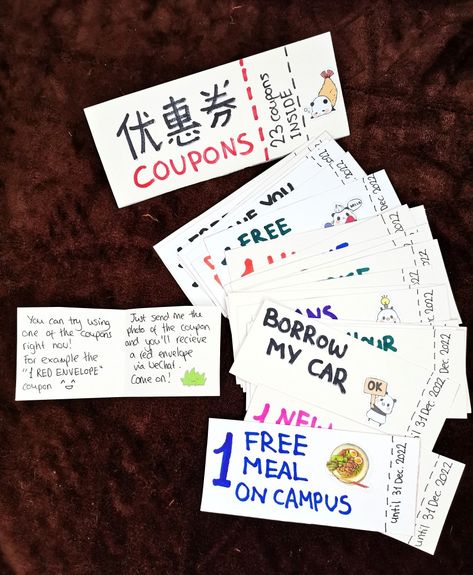 优惠券
COUPONS
23 coupons
INSIDE
YOU
2022
1 FREE
HELLO
Dec. 2022
2022
2022
HOUR
2022
BORROW
MY CAR
OK
until 31 Dec. 2022
1 NEW
You can try using
one of the coupons
right now!
For example the
"1 RED ENVELOPE"
coupon
Just send me the
photo of the coupon
and you'll recieve
a red envelope
via WeChat.
Come on!
1 FREE
MEAL
ON CAMPUS
until 31 Dec. 2022
until 31 Dec. 2022